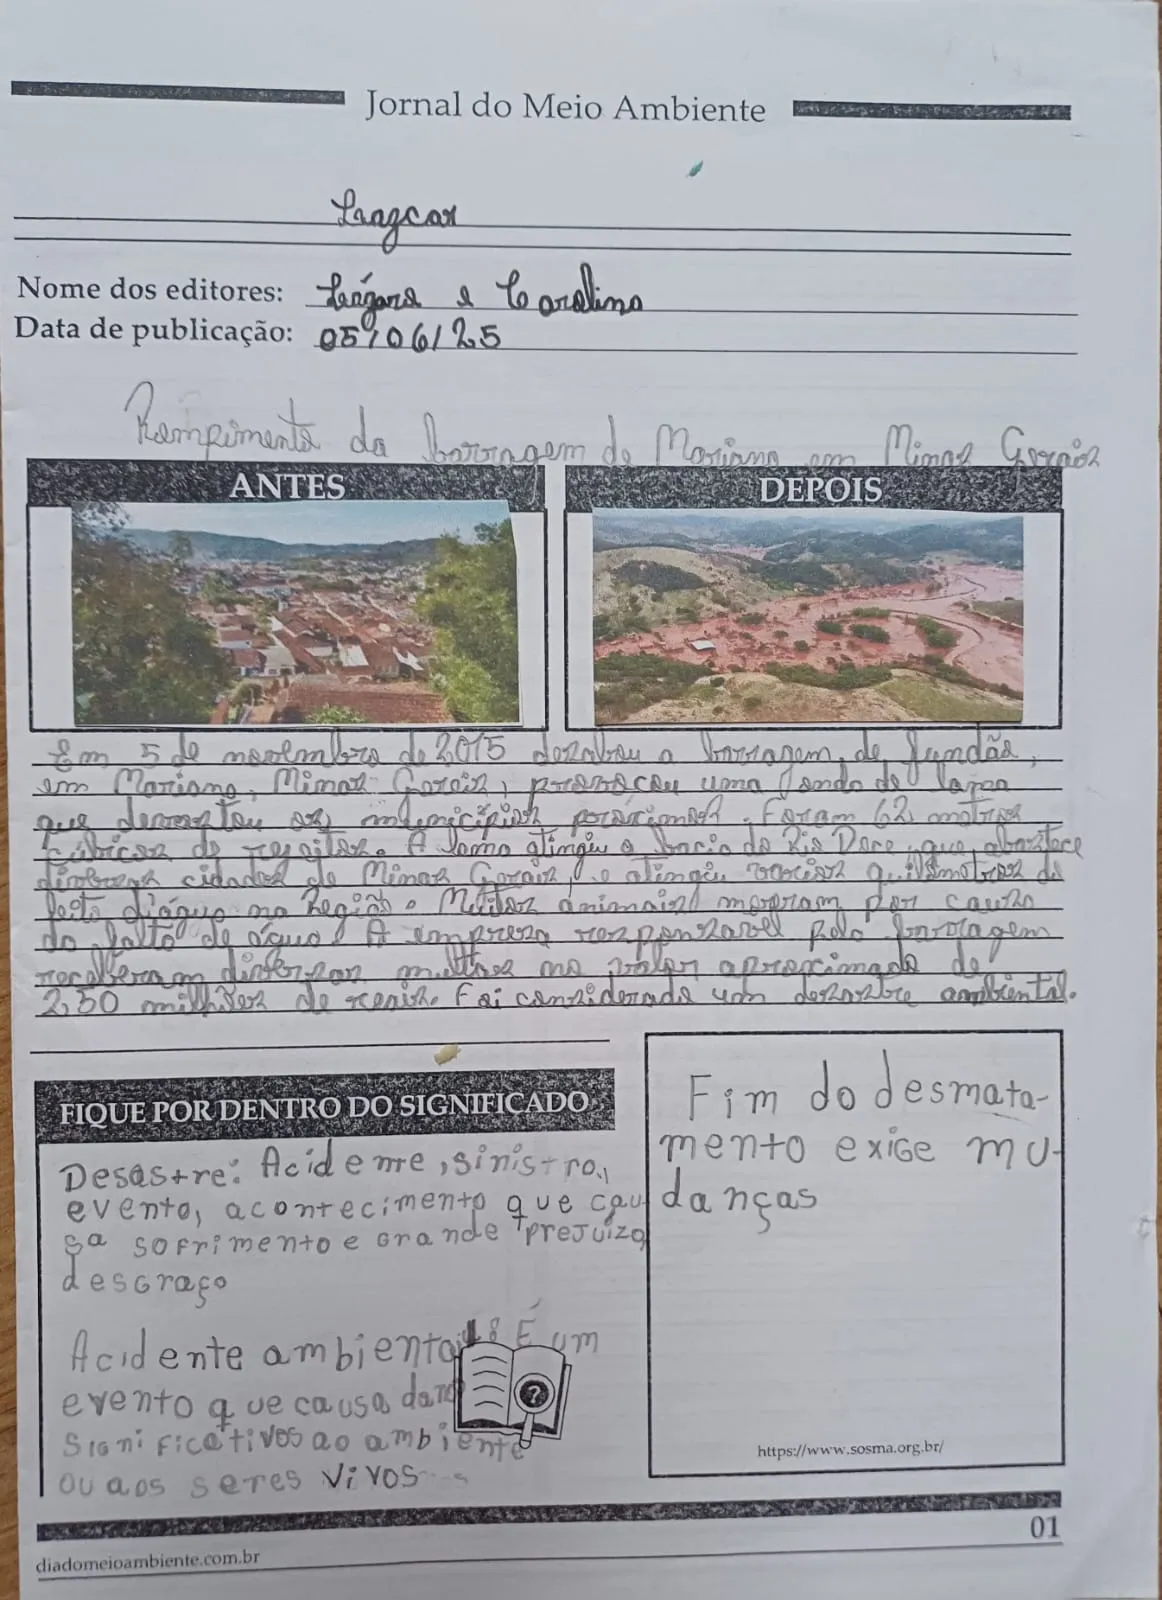 Jornal do Meio Ambiente
Langcar
Nome dos editores: Lângara e Carolina
Data de publicação: 05/06/25
Rompimento da barragem de Mariana em Minas Gerais
ANTES
DEPOIS
Em 5 de novembro de 2015 desabou a barragem de Fundão,
em Mariana, Minas Gerais, provocou uma onda de lama
que devastou os municípios próximos. Foram 62 metros
cúbicos de rejeitos. A lama atingiu a bacia do Rio Doce, que abastece
diversas cidades de Minas Gerais, e atingiu vários quilômetros de
leito d'água na Região. Muitos animais morreram por causa
da falta de água. A empresa responsavel pela barragem
receberam diversas multas no valor aproximado de
250 milhões de reais. Foi considerado um desastre ambiental.
FIQUE POR DENTRO DO SIGNIFICADO
Desastre: Acidente, sinistro,
evento, acontecimento que cau
sa sofrimento e grande prejuízo
desgraço
Acidente ambiental: É um
evento que causa dano
significativos ao ambiente
ou aos seres vivos
Fim do desmata-
mento exige mu-
danças
https://www.sosma.org.br/
01
diadomeioambiente.com.br